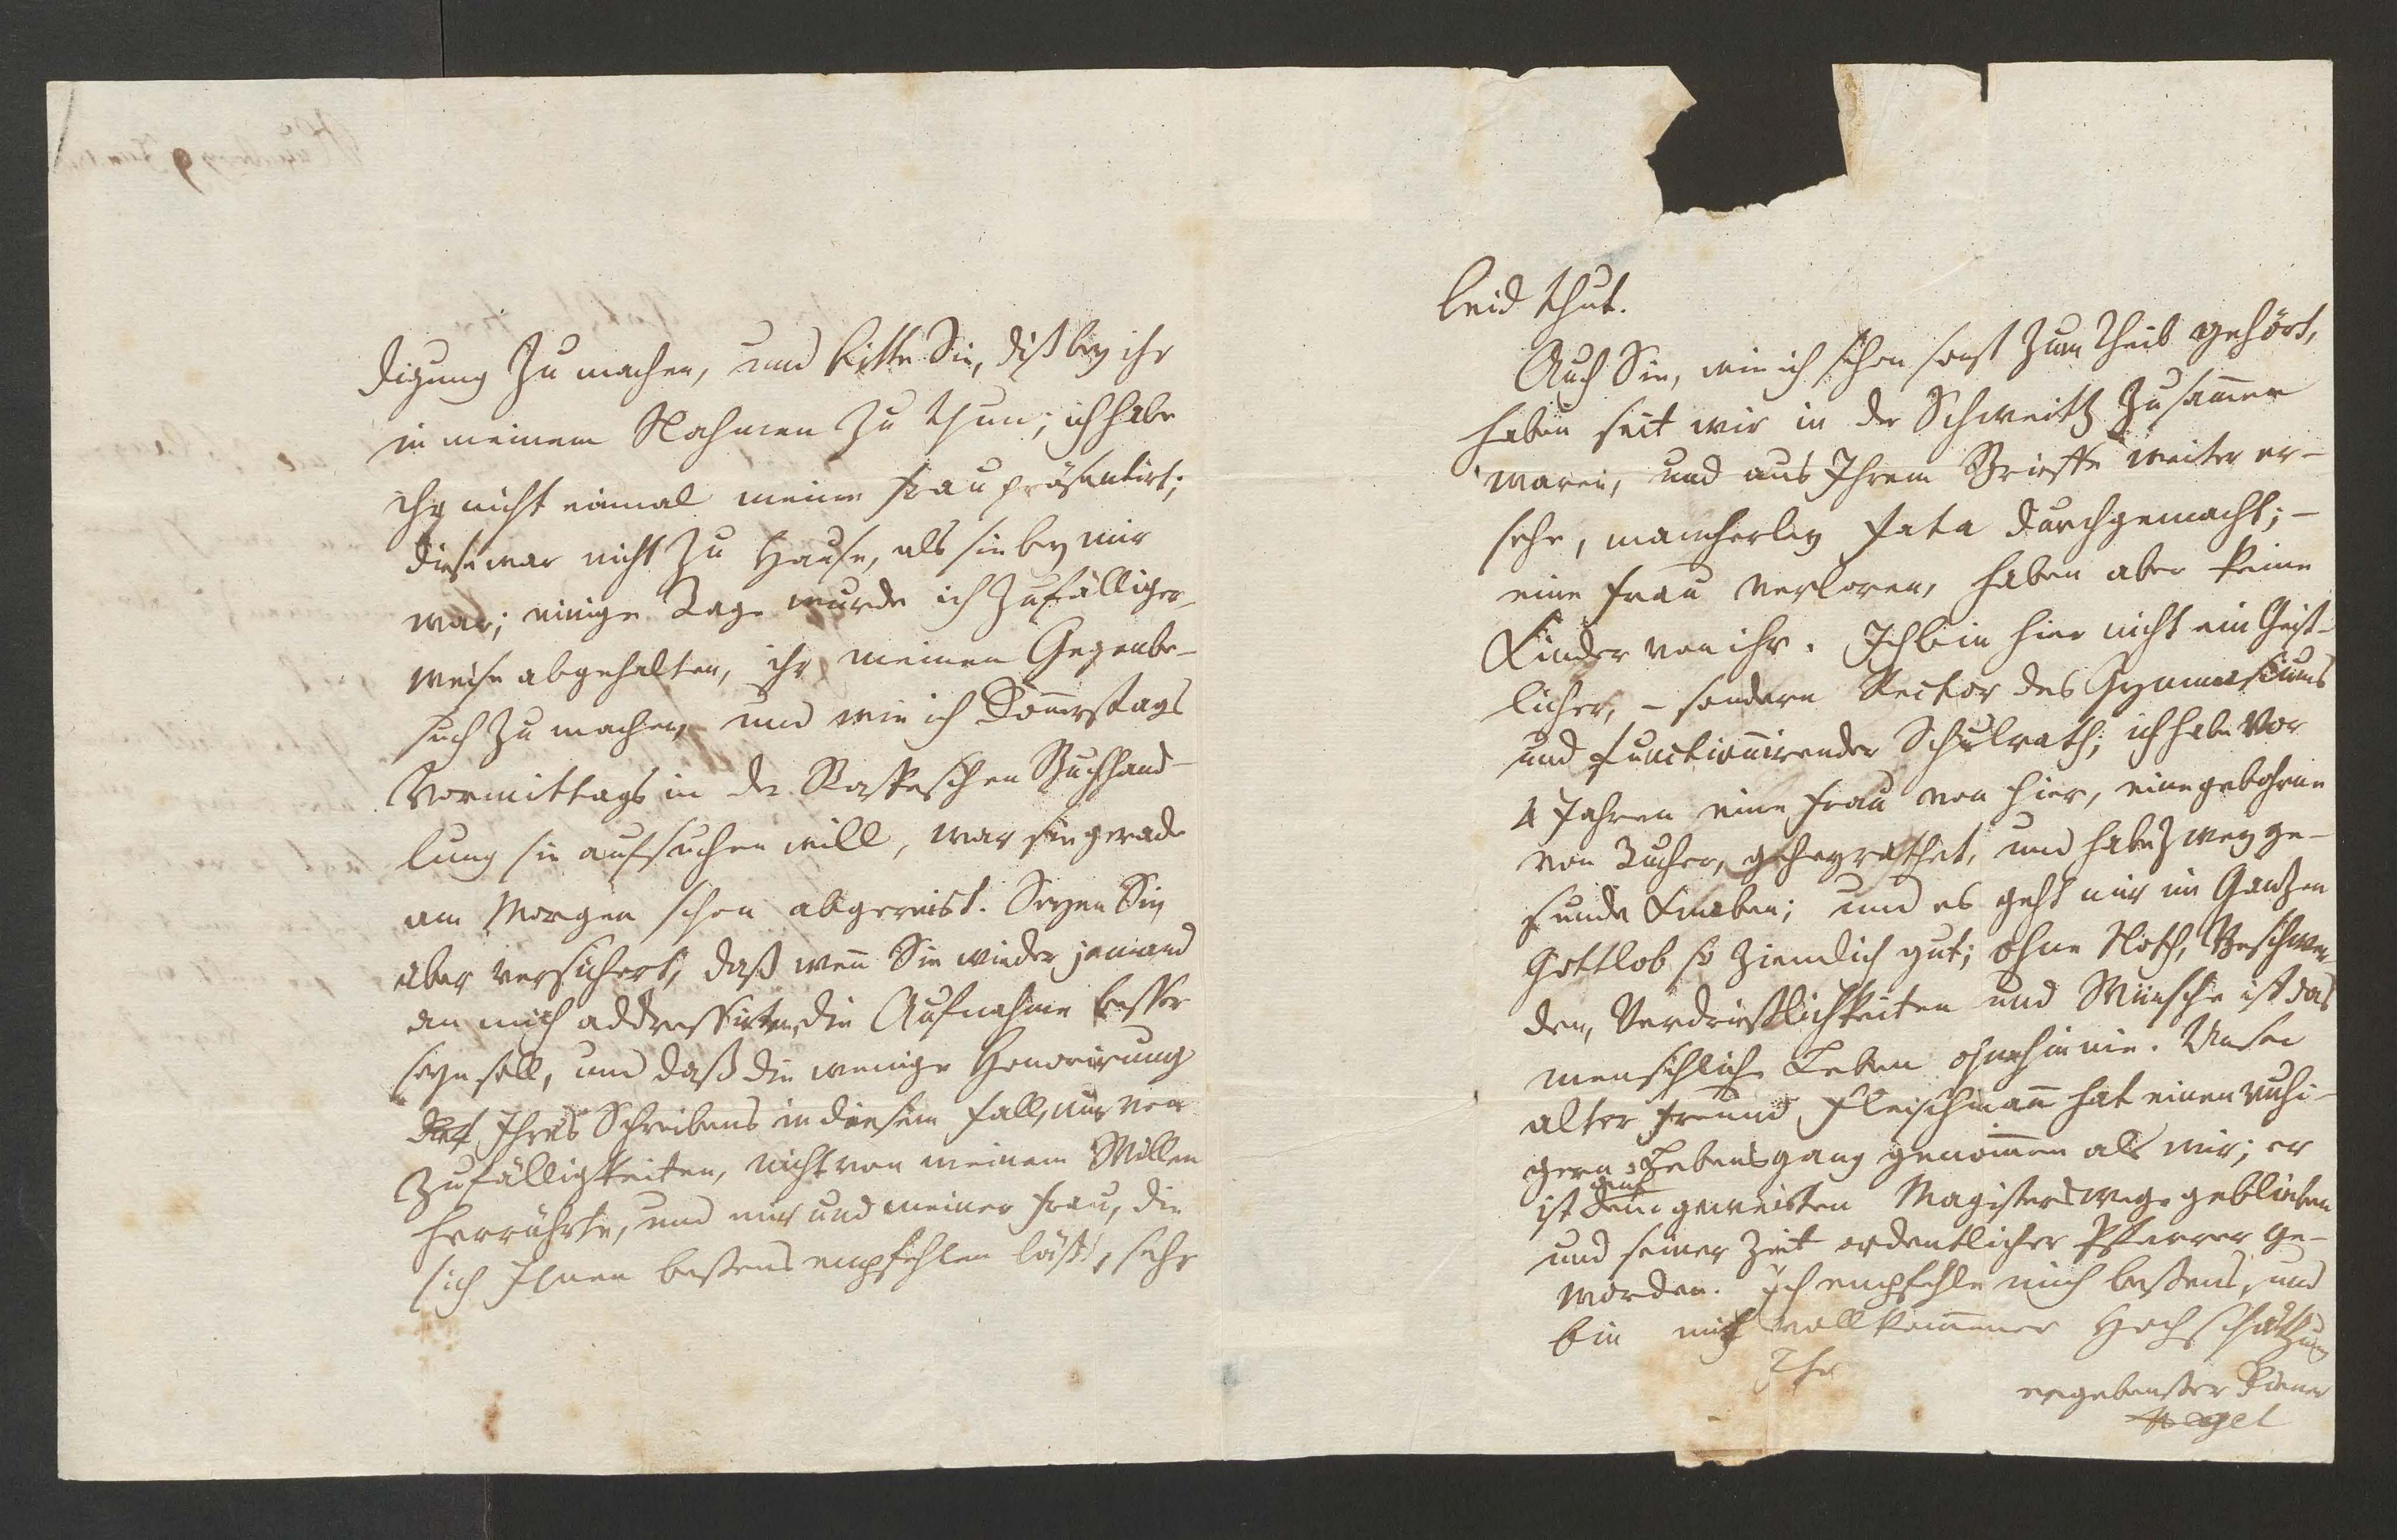 digung zu machen, und bitte Sie, diß bey ihr
in meinem Nahmen zu thun; ich habe
ihr nicht einmal meine Frau präsentirt;
diese war nicht zu Hause, als sie bey mir
war; einige Tage wurde ich zufälliger-
weise abgehalten, ihr meinen Gegenbe-
such zu machen, und wie ich Donnerstags
Vormittags in der Raspeschen Buchhand-
lung sie aufsuchen will, war sie gerade
am Morgen schon abgereist. Seyen Sie
aber versichert, daß wenn Sie wieder jemand
an mich addressirten, die Aufnahme besser
seyn soll, und daß die wenige Honorirung
Ihres Schreibens in diesem Fall, nur von
Zufälligkeiten, nicht von meinem Willen
herrührte, und mir und meiner Frau, die
sich Ihnen bestens empfehlen läßt, sehr
leid thut.
Auch Sie, wie ich schon sonst zum Theil gehört,
haben seit wir in der Schweitz zusammen
waren, und aus Ihrem Brieffe weiter er-
sehe, mancherley Fata durchgemacht; –
eine Frau verloren, haben aber keine
Kinder von ihr. Ich bin hier nicht ein Geist-
licher, – sondern Rector des Gymnasiums
und functionirender Schulrath; ich habe vor
4 Jahren eine Frau von hier, eine gebohrne
von Tucher, geheyrathet, und habe zwey ge-
sunde Knaben; und es geht mir im Ganzen
Gottlob so ziemlich gut; ohne Noth, Beschwer-
den, Verdrießlichkeiten und Wünsche ist das
menschliche Leben ohnehin nie. Unser
alter Freund Fleischmann hat einen ruhi-
gern Lebensgang genommen als wir; er
ist dem geweisten Magisterswege geblieben
und seiner Zeit ordentlicher Pfarrer ge-
worden. Ich empfehle mich bestens, und
bin mit vollkommener Hochschätzung
Ihr
ergebenster Diener
Hegel